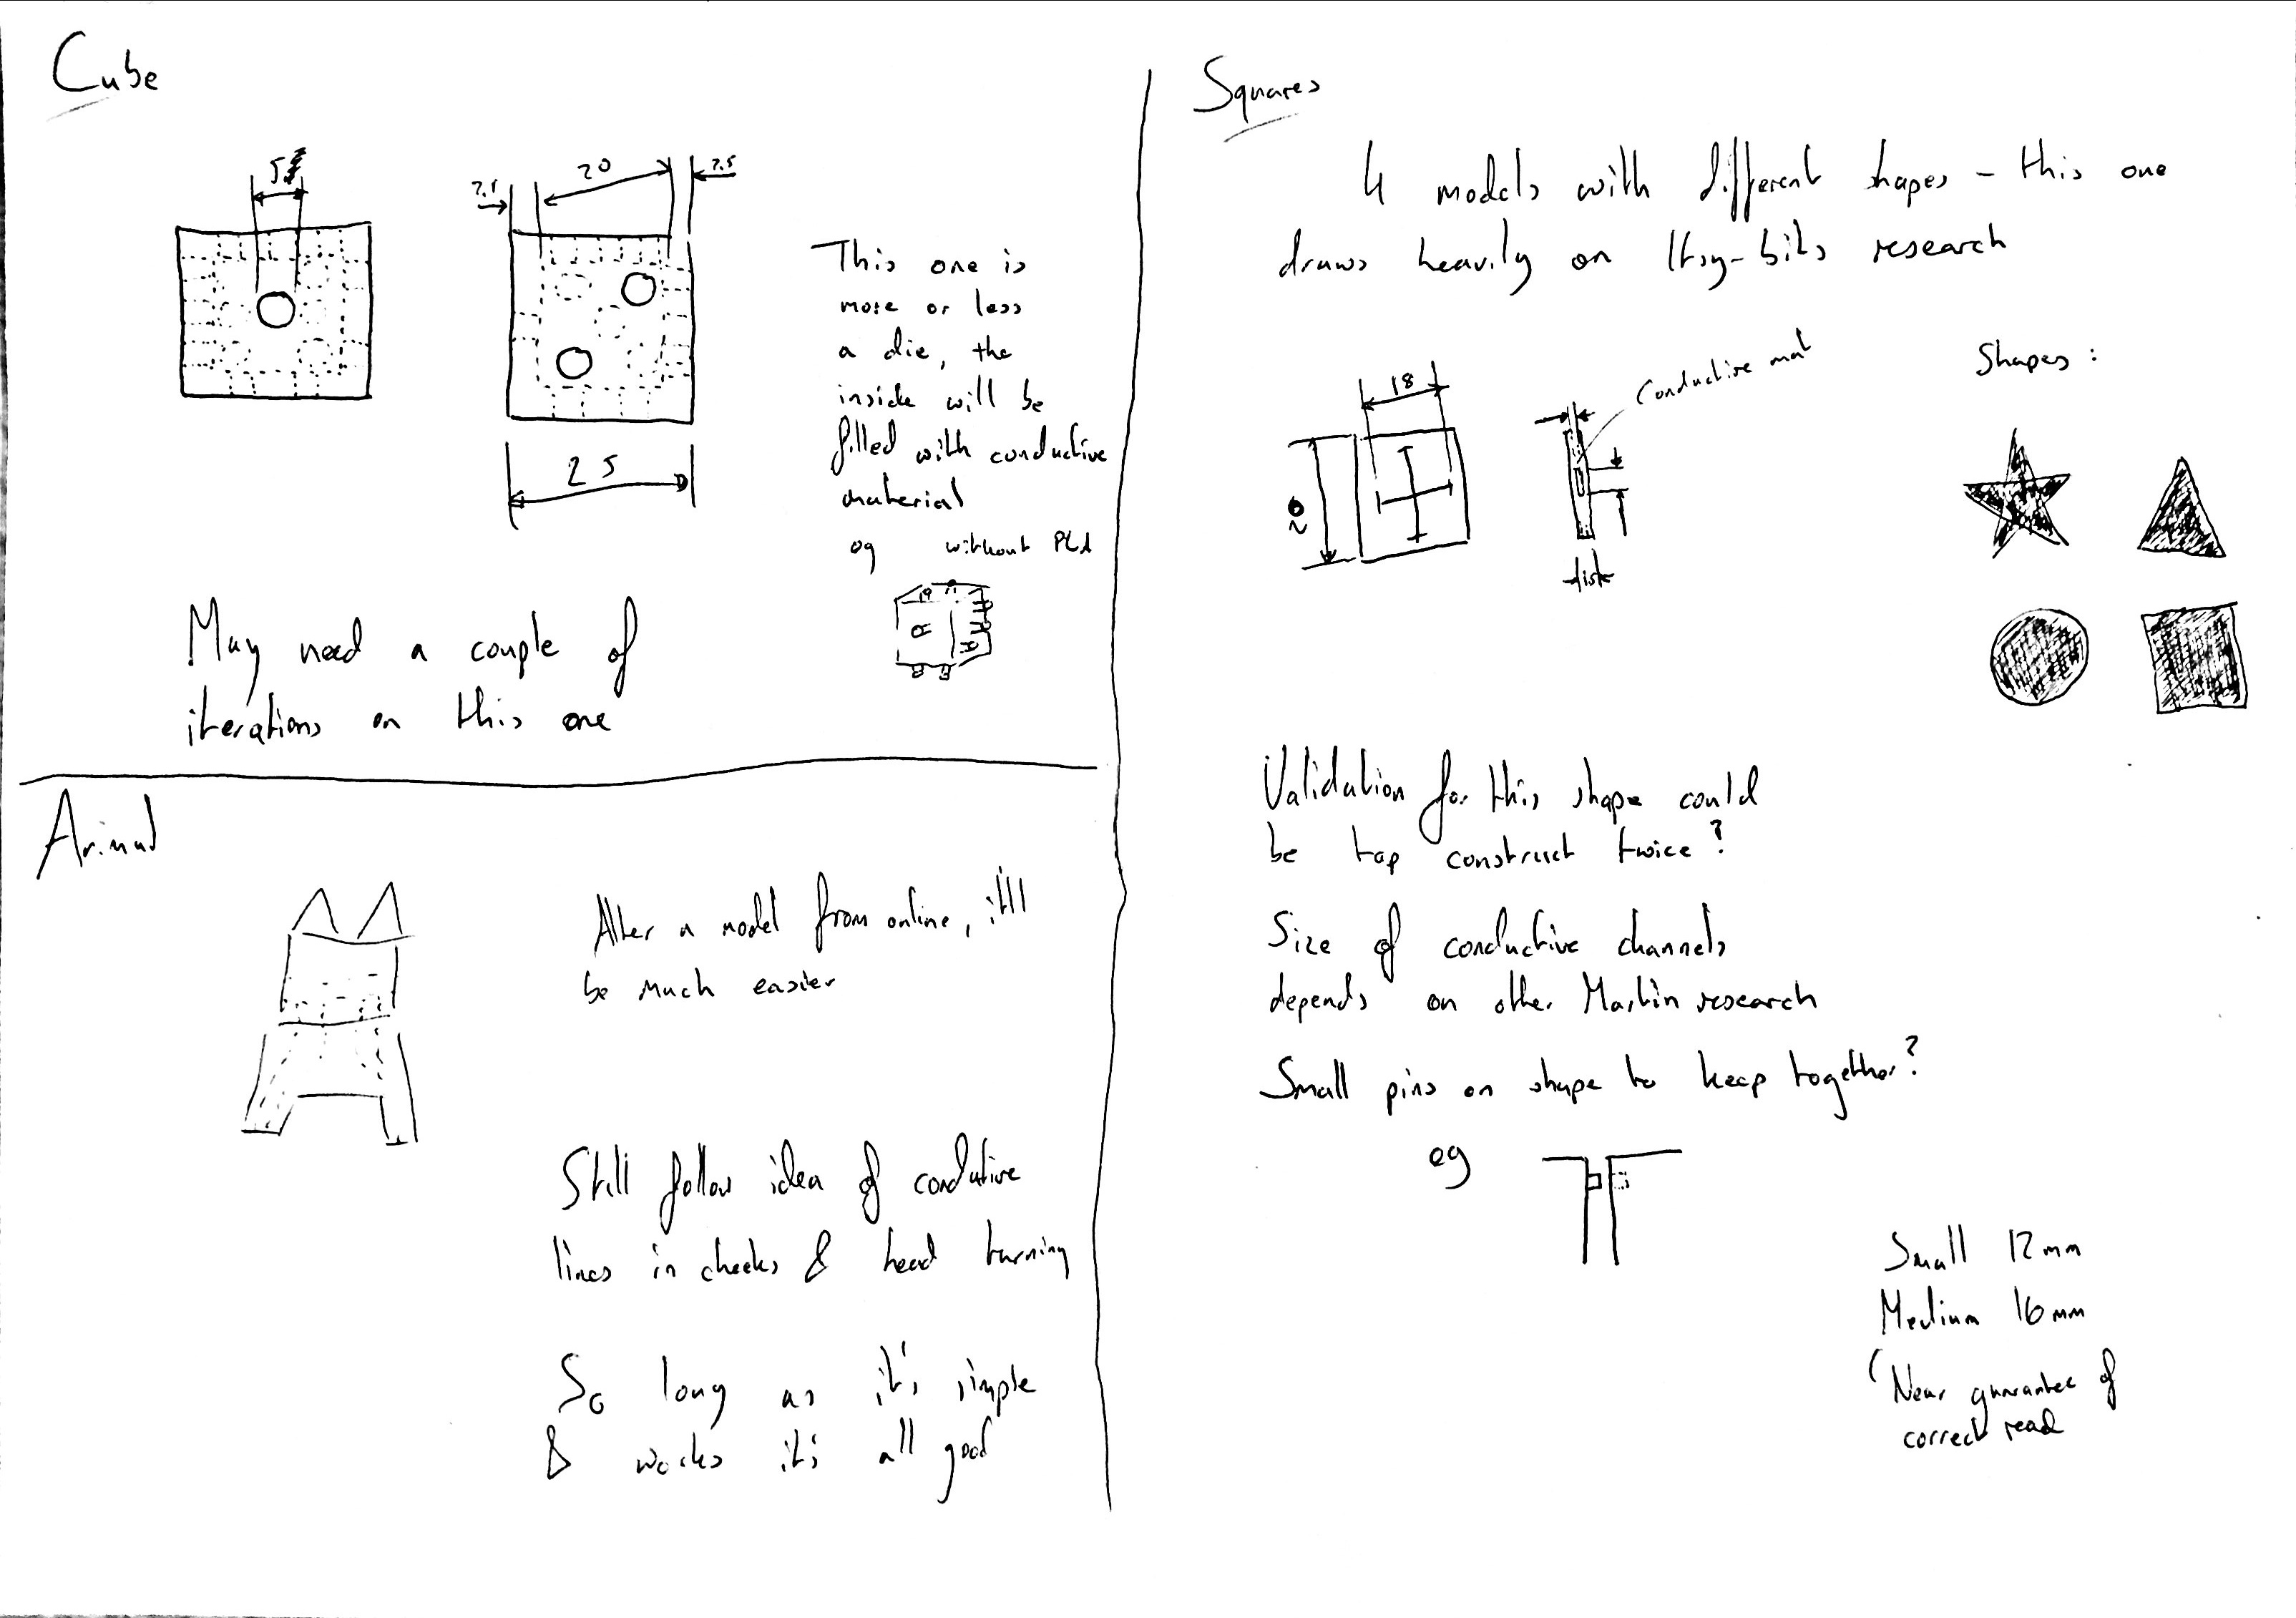 Cube
5
2.5
20
2.5
25
This one is
more or less
a die, the
inside will be
filled with conductive
material
eg without PLA
May need a couple of
iterations on this one
Animal
Alter a model from online, it'll
be much easier
Still follow idea of conductive
lines in cheeks & head turning
So long as it's simple
& works it's all good
Squares
4 models with different shapes - this one
draws heavily on Itsy-bits research
18
Conductive mat
Shapes:
Validation for this shape could
be tap construct twice?
Size of conductive channels
depends on other Martin research
Small pins on shape to keep together?
eg
Small 12mm
Medium 16mm
(Near guarantee of
correct read